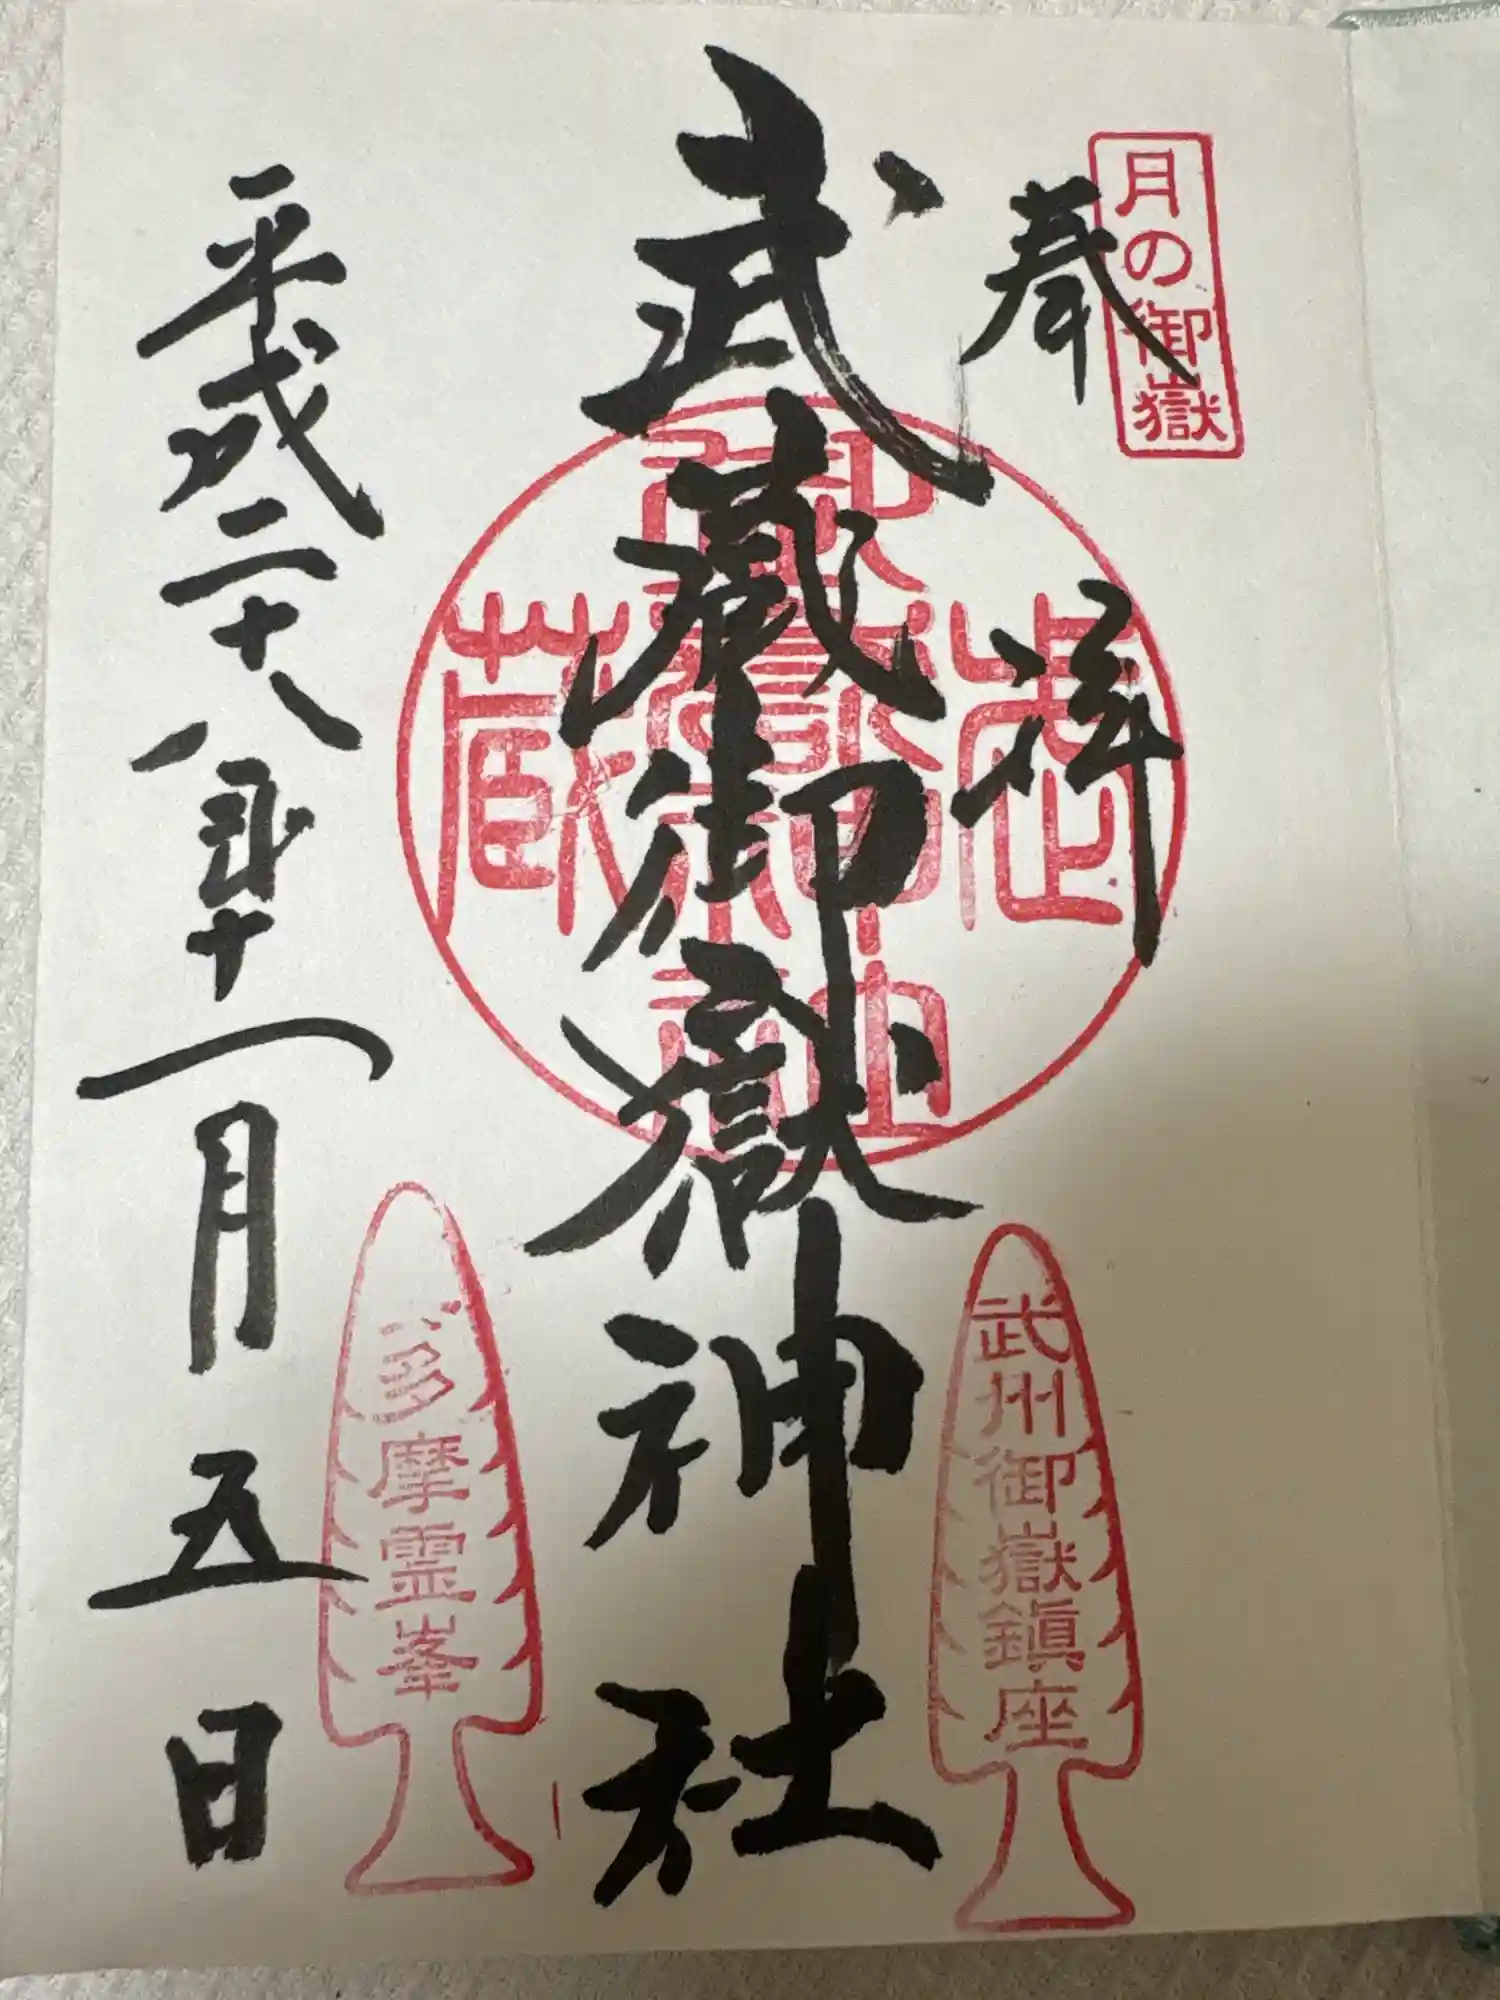 月の御嶽
奉拝
武州御嶽鎮座
武蔵御嶽神社
武蔵御嶽神社
多摩霊峯
平成二十八年十一月五日